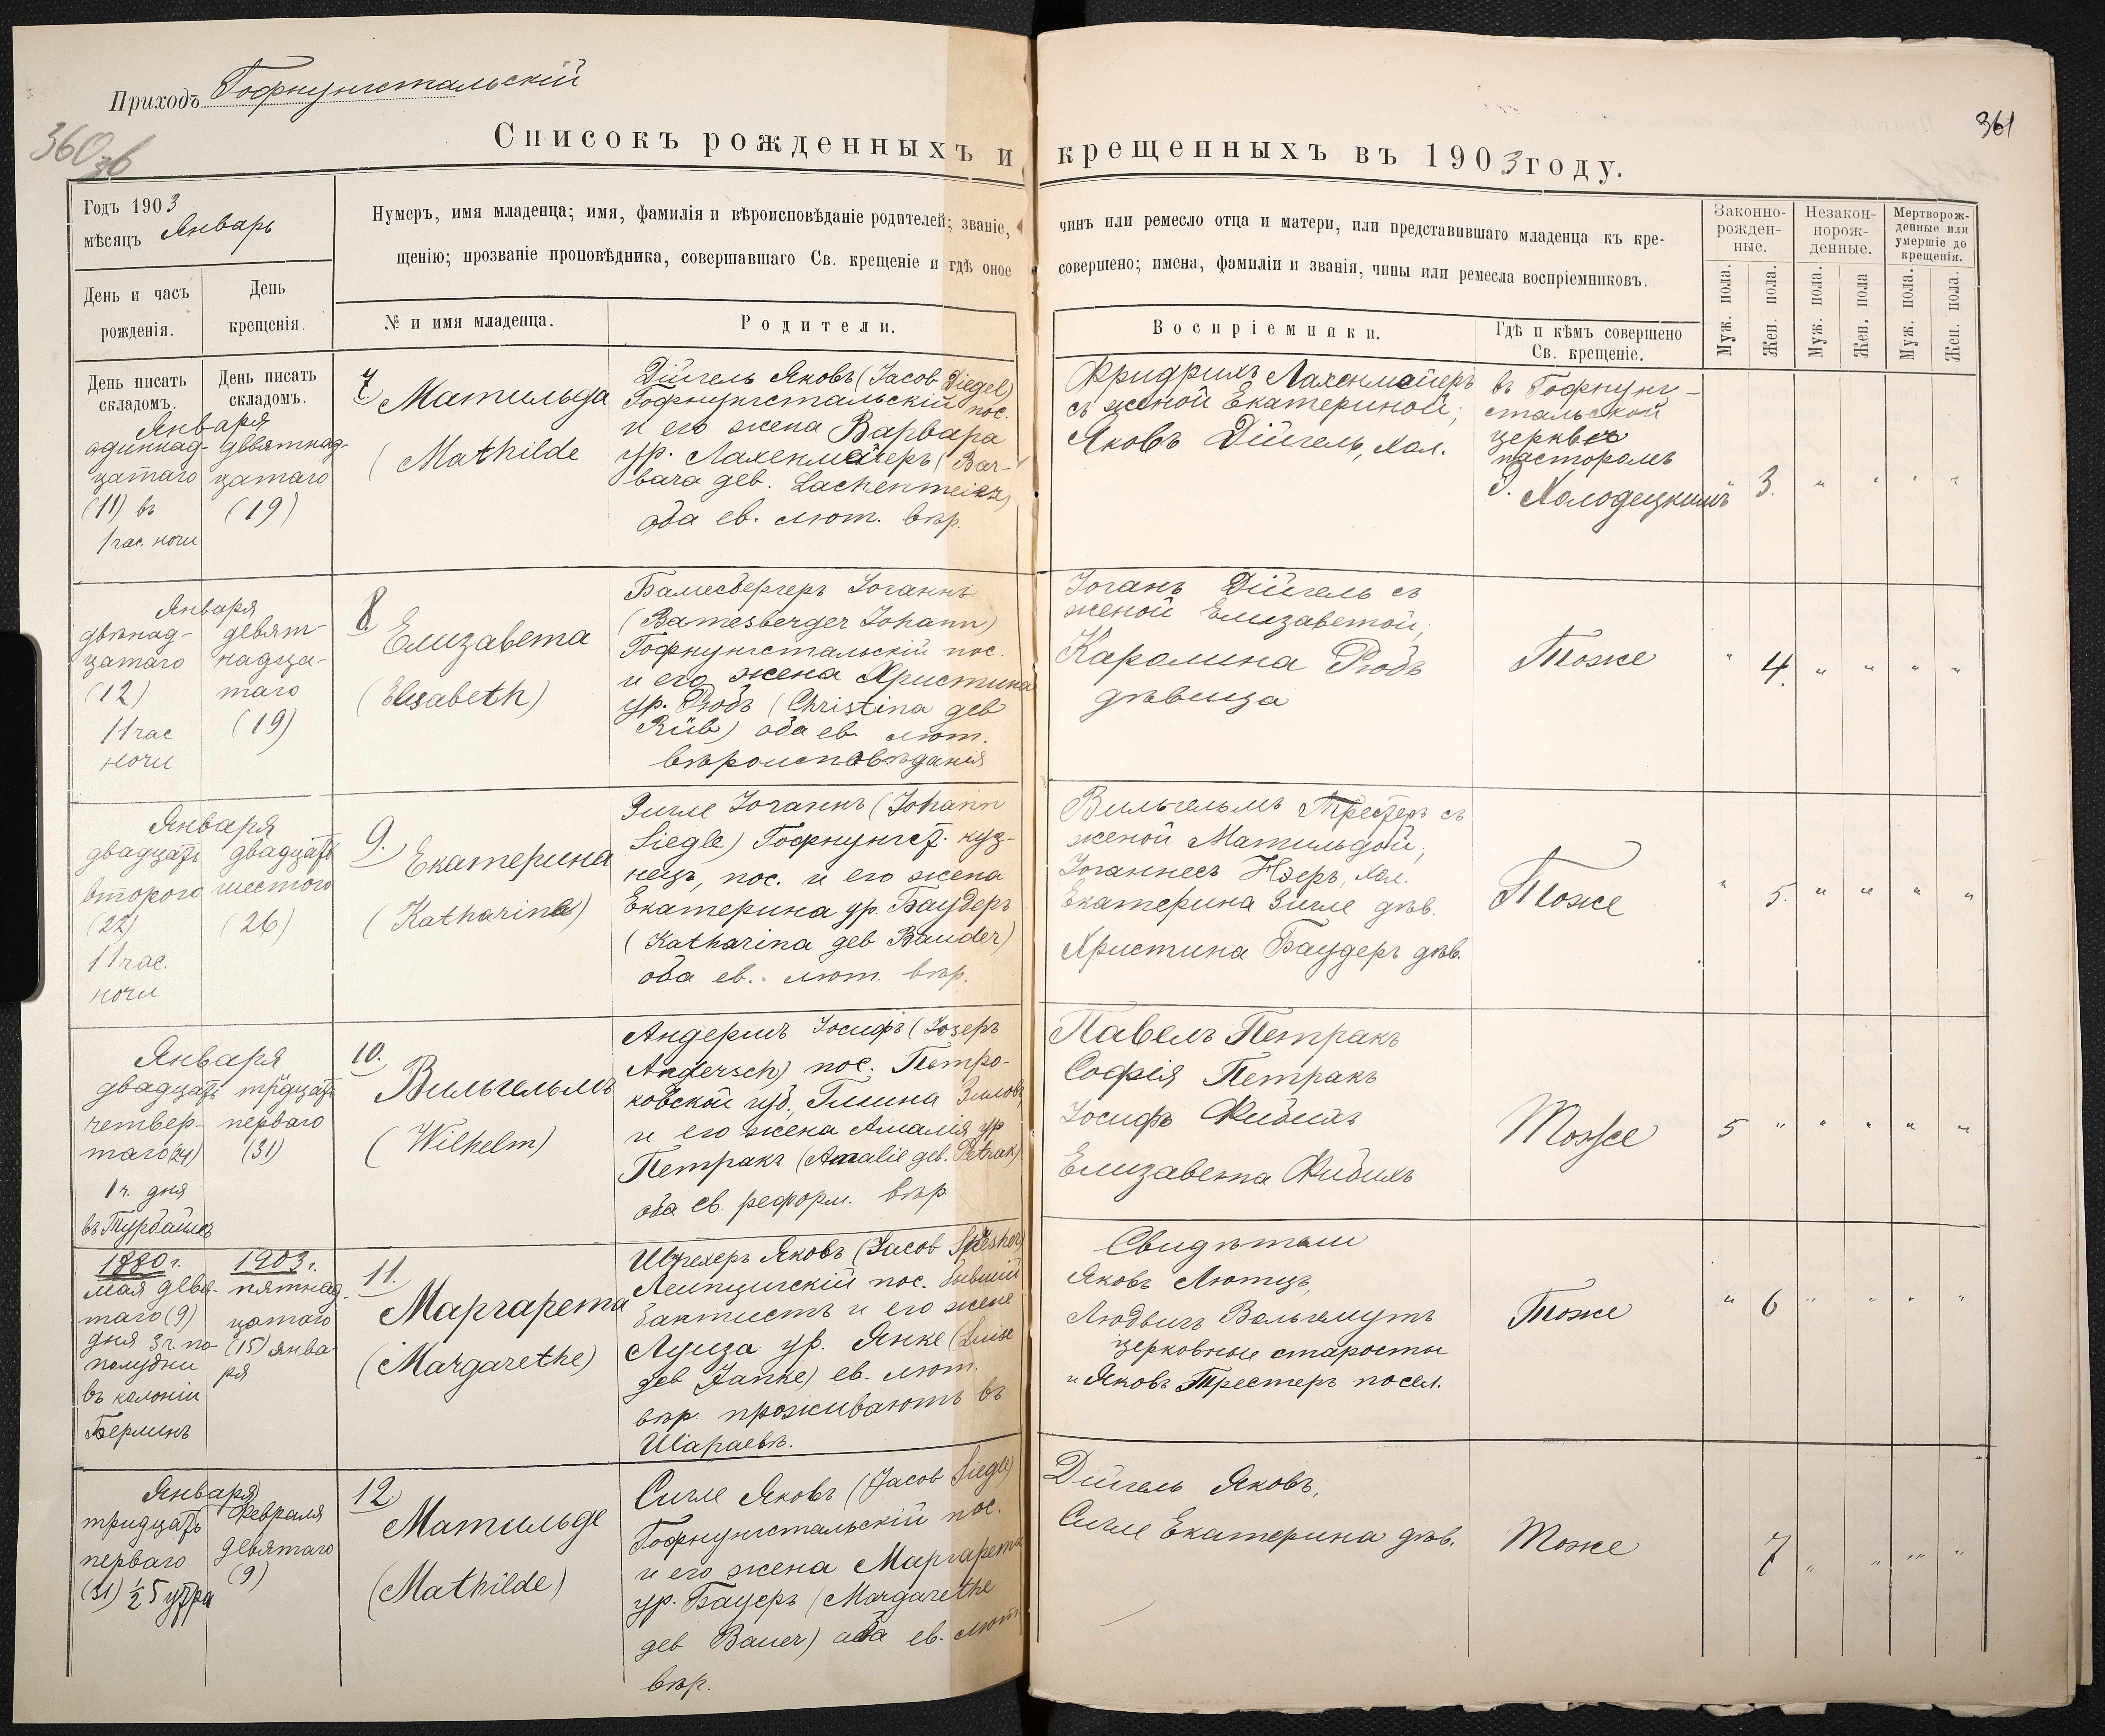 Приходъ Гофнунгстальскій
360 зв
361
Списокъ рожденныхъ и крещенныхъ въ 1903 году.
Годъ 1903
мѣсяцъ Январь
День и часъ
рожденія.
День
крещенія.
Нумеръ, имя младенца; имя, фамилія и вѣроисповѣданіе родителей; званіе, чинъ или ремесло отца и матери, или представившаго младенца къ кре-
щенію; прозваніе проповѣдника, совершавшаго Св. крещеніе и гдѣ оное совершено; имена, фамиліи и званія, чины или ремесла воспріемниковъ.
№ и имя младенца.
Родители.
Воспріемники.
Гдѣ и кѣмъ совершено
Св. крещеніе.
Законно-
рожден-
ные.
Незакон-
норож-
денные.
Мертворож-
денные или
умершіе до
крещенія.
Муж. пола.
Жен. пола.
Муж. пола.
Жен. пола
Муж. пола.
Жен. пола.
День писать
складомъ.
День писать
складомъ.
Января
одиннад-
цатаго
(11) въ
1 час. ночи
девятнад-
цатаго
(19)
7 Матильда
(Mathilde
Дійгель Яковъ (Jacob Diegel)
Гофнунгстальскій пос.
и его жена Варвара
ур. Лахенмейеръ (Bar-
bara geb. Lachenmeier)
оба ев. лют. вѣр.
Фридрихъ Лахенмейеръ
съ женой Екатериной;
Яковъ Дійгель, хол.
въ Гофнунг-
стальской
церкви
пасторомъ
Холодецкимъ
" 3. " " " "
Января
двѣнад-
цатаго
(12)
11 час
ночи
девят-
надца-
таго
(19)
8. Елизавета
(Elisabeth)
Бамесбергеръ Іоганнъ
(Bamesberger Johann)
Гофнунгстальскій пос.
и его жена Христина
ур. Рюбъ (Christina geb
Rüb) оба ев. лют.
вѣроисповѣданія
Іоганъ Дійгель съ
женой Елизаветой;
Каролина Рюбъ
дѣвица
Тоже
" 4. " " " "
Января
двадцать
второго
(22)
11 час.
ночи
двадцать
шестого
(26)
9. Екатерина
(Katharina)
Зигле Іоганнъ (Johann
Siegle) Гофнунгст. куз-
нецъ, пос. и его жена
Екатерина ур. Баудеръ
(Katharina geb Bauder)
оба ев. лют. вѣр.
Вильгельмъ Трестеръ съ
женой Матильдой;
Іоганнесъ Нэеръ, хол.
Екатерина Зигле дѣв.
Христина Баудеръ дѣв.
Тоже
" 5. " " " "
Января
двадцать
четвер-
таго (24)
1 ч. дня
въ Турбайцѣ
тридцать
перваго
(31)
10. Вильгельмъ
(Wilhelm)
Андершъ Іосифъ (Iозефъ
Andersch) пос. Петро-
ковской губ., Гмина Зиловъ
и его жена Амалія ур
Петракъ (Amalie geb. Petrak)
оба ев. реформ. вѣр
Павелъ Петракъ
Софія Петракъ
Іосифъ Фибихъ
Елизавета Фибихъ
Тоже
5 " " " " "
1880 г.
мая девя-
таго (9)
дня 3 ч. по-
полудни
въ колоніи
Берлинъ
1903 г.
пятнад-
цатаго
(15) янва-
ря
11. Маргарета
(Margarethe)
Яковъ (Jacob
Лейпцигскій пос. бывшій
баптистъ и его жене
Луиза ур. Янке (Luise
geb Janke) ев. лют.
вѣр. проживаютъ въ
Шараевѣ.
Свидѣтели
Яковъ Лютцъ,
Людвигъ Вольгемутъ
церковные старосты
и Яковъ Трестеръ посел.
Тоже
" 6 " " " "
Января
тридцать
перваго
(31) ½ 5 утра
Февраля
девятаго
(9)
12 Матильде
(Mathilde)
Сигле Яковъ (Jacob Siegle)
Гофнунгстальскій пос.
и его жена Маргарета
ур. Бауеръ (Margarethe
geb Bauer) оба ев. лют
вѣр.
Дійгель Яковъ,
Сигле Екатерина дѣв.
Тоже
7 " " " "